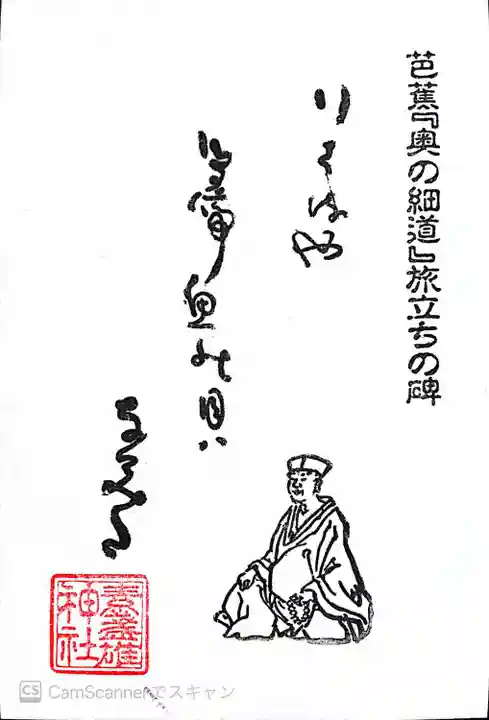 芭蕉『奥の細道』旅立ちの碑
行はるや
鳥啼魚の目ハ
なみた
素盞雄
神社
CS CamScannerでスキャン